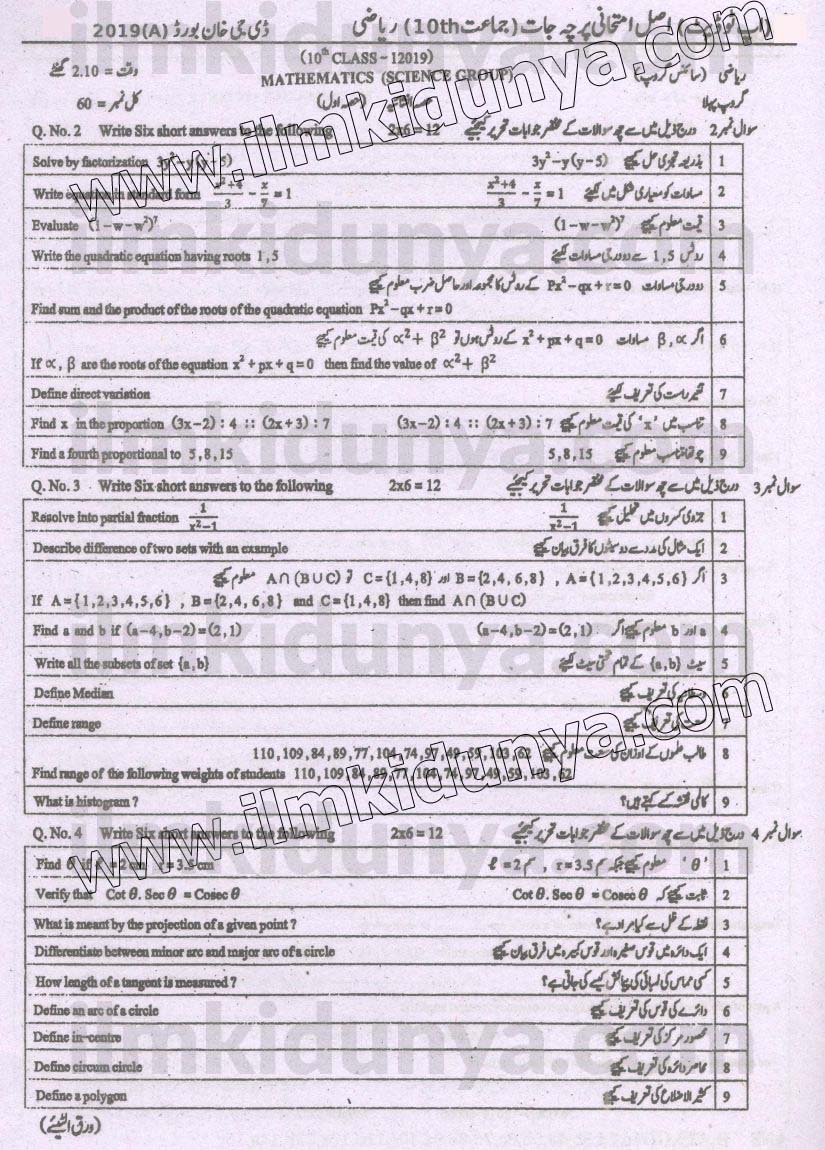 (اپ ٹو ڈیٹ) اصل امتحانی پرچہ جات (جماعت 10th) ریاضی ڈی جی خان بورڈ 2019(A)
(10th CLASS - 12019)
ریاضی (سائنس گروپ) MATHEMATICS (SCIENCE GROUP) وقت = 2.10 گھنٹے
گروپ پہلا (حصہ اول) کل نمبر = 60
Q. No. 2 Write Six short answers to the following 2x6 = 12 سوال نمبر 2 درج ذیل میں سے چھ سوالات کے مختصر جوابات تحریر کیجئیے
Solve by factorization 3y²-y(y-5) بذریعہ تجزی حل کیجیے 3y²-y(y-5) 1
Write equation in standard form (x²+4)/3 - x/7 = 1 مساوات کو معیاری شکل میں لکھئیے (x²+4)/3 - x/7 = 1 2
Evaluate (1-w-w²)⁷ قیمت معلوم کیجیے (1-w-w²)⁷ 3
Write the quadratic equation having roots 1,5 روٹس 1,5 سے دو درجی مساوات لکھئیے 4
دو درجی مساوات Px²-qx+r=0 کے روٹس کا مجموعہ اور حاصل ضرب معلوم کیجیے 5
Find sum and the product of the roots of the quadratic equation Px²-qx+r=0
اگر β,∝ مساوات x²+px+q=0 کے روٹس ہوں تو ∝²+β² کی قیمت معلوم کیجیے 6
If ∝, β are the roots of the equation x²+px+q=0 then find the value of ∝²+β²
Define direct variation تغیر راست کی تعریف لکھئیے 7
Find x in the proportion (3x-2):4 :: (2x+3):7 تناسب میں 'x' کی قیمت معلوم کیجیے (3x-2):4 :: (2x+3):7 8
Find a fourth proportional to 5,8,15 چوتھا تناسب معلوم کیجیے 5,8,15 9
Q. No. 3 Write Six short answers to the following 2x6 = 12 سوال نمبر 3 درج ذیل میں سے چھ سوالات کے مختصر جوابات تحریر کیجئیے
Resolve into partial fraction 1/(x²-1) جزوی کسروں میں تحلیل کیجیے 1/(x²-1) 1
Describe difference of two sets with an example ایک مثال کی مدد سے دو سیٹوں کا فرق بیان کیجیے 2
اگر A={1,2,3,4,5,6} , B={2,4,6,8} اور C={1,4,8} تو A∩(B∪C) معلوم کیجیے 3
If A={1,2,3,4,5,6} , B={2,4,6,8} and C={1,4,8} then find A∩(B∪C)
Find a and b if (a-4,b-2)=(2,1) a اور b معلوم کیجیے اگر (a-4,b-2)=(2,1) 4
Write all the subsets of set {a,b} سیٹ {a,b} کے تمام تحتی سیٹ لکھئیے 5
Define Median وسطانیہ کی تعریف کیجیے 6
Define range سعت کی تعریف کیجیے 7
طالب علموں کے اوزان کی سعت معلوم کیجیے 110,109,84,89,77,104,74,97,49,59,103,62 8
Find range of the following weights of students 110,109,84,89,77,104,74,97,49,59,103,62
What is histogram ? کالمی نقشہ کسے کہتے ہیں؟ 9
Q. No. 4 Write Six short answers to the following 2x6 = 12 سوال نمبر 4 درج ذیل میں سے چھ سوالات کے مختصر جوابات تحریر کیجئیے
Find θ if ℓ = 2 cm r = 3.5 cm 'θ' معلوم کیجیے جبکہ r = 3.5 سم , ℓ = 2 سم 1
Verify that Cot θ. Sec θ = Cosec θ ثابت کیجئے کہ Cot θ. Sec θ = Cosec θ 2
What is meant by the projection of a given point ? نقطہ کے ظل سے کیا مراد ہے؟ 3
Differentiate between minor arc and major arc of a circle ایک دائرہ میں قوس صغیرہ اور قوس کبیرہ میں فرق بیان کیجیے 4
How length of a tangent is measured ? کسی مماس کی لمبائی کی پیمائش کیسے کی جاتی ہے؟ 5
Define an arc of a circle دائرے کی قوس کی تعریف کیجیے 6
Define in-centre محصور مرکز کی تعریف کیجیے 7
Define circum circle محاصر دائرہ کی تعریف کیجیے 8
Define a polygon کثیر الاضلاع کی تعریف کیجیے 9
(ورق الٹیئے)
www.ilmkidunya.com
www.ilmkidunya.com
ilmkidunya.com
ilmkidunya.com
ilmkidunya.com
ilmkidunya.com
ilmkidunya.com